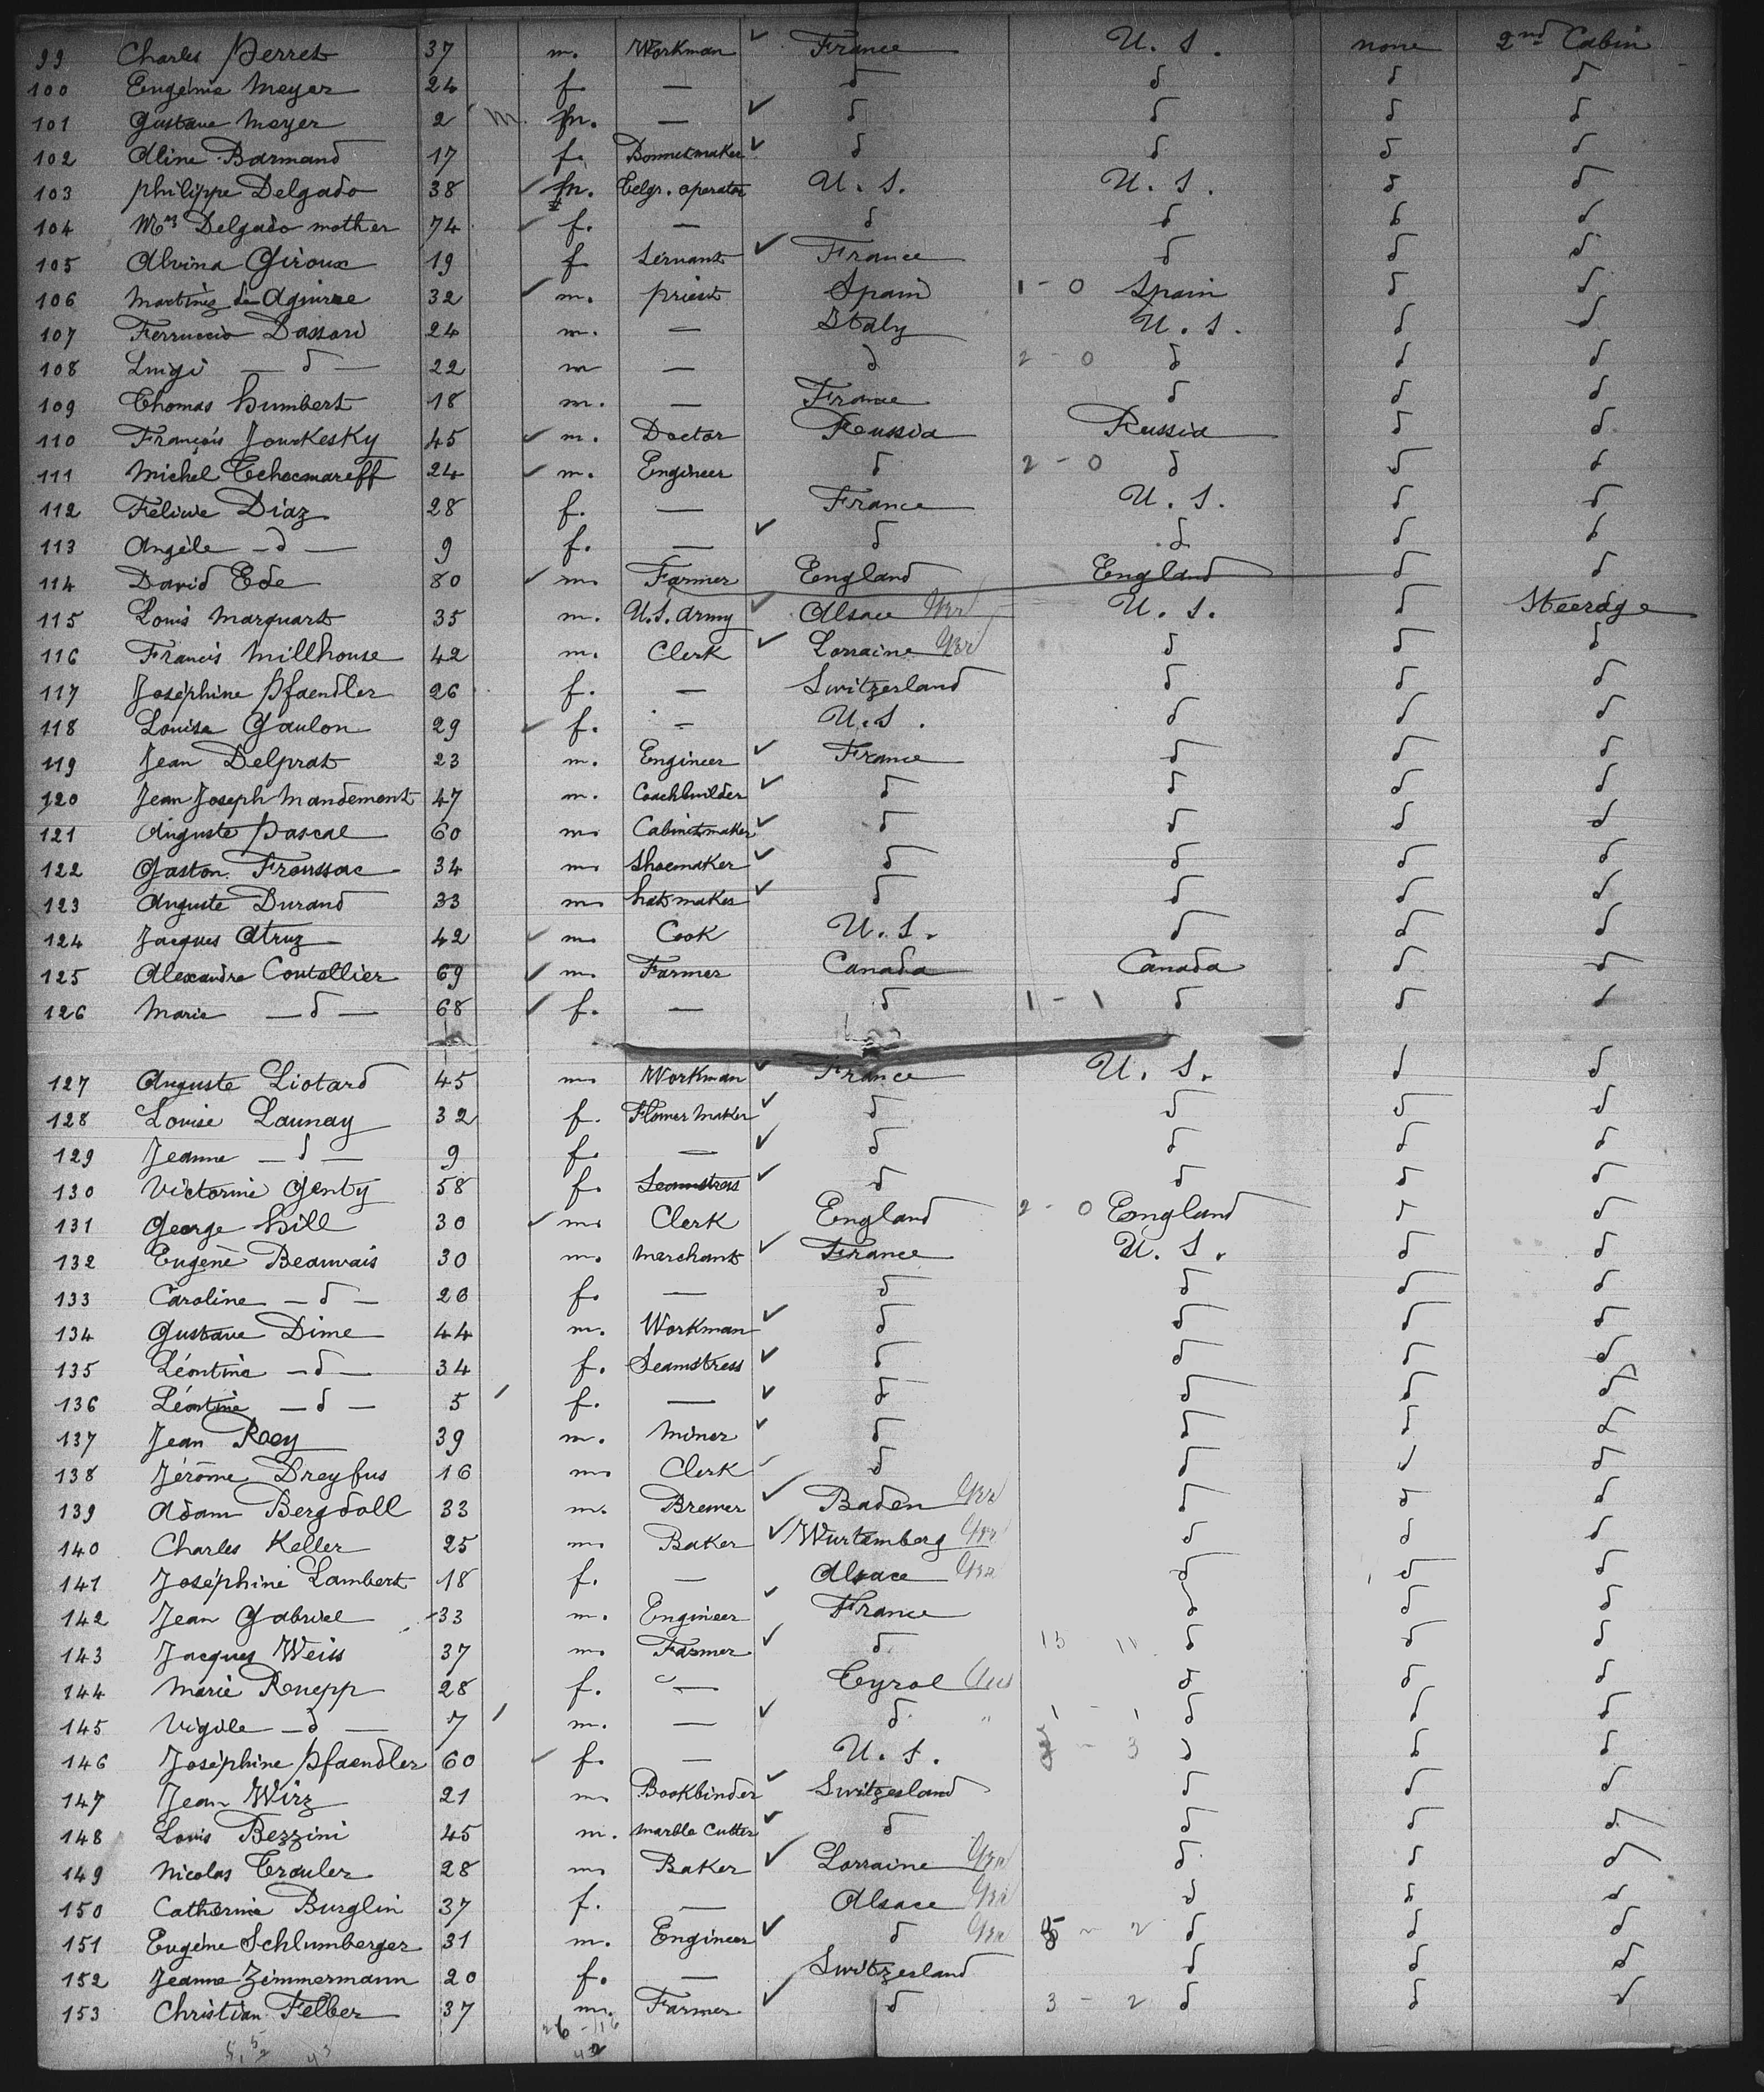 99 Charles Perret 37 m. Workman ✓ France U. S. none 2nd Cabin
100 Eugénie Meyer 24 f. — d d d d
101 Gustave Meyer 2 m. m. — ✓ d d d d
102 Aline Barmand 17 f. Bonnetmaker ✓ d d d d
103 Philippe Delgado 38 ✓ m. Telgr. operator U. S. U. S. d d
104 Mrs Delgado mother 74 ✓ f. — d d d d
105 Alvina Giroux 19 f. Servant ✓ France d d d
106 Martinez de Aguirre 32 ✓ m. priest Spain 1 - 0 Spain d d
107 Ferruccio Dassori 24 m. — Italy U. S. d d
108 Luigi — d — 22 m — d 2 - 0 d d d
109 Thomas Humbert 18 m. — France d d d
110 François Jourkesky 45 ✓ m. Doctor Russia Russia d d
111 Michel 24 ✓ m. Engineer d 2 - 0 d d d
112 Diaz 28 f. — France U. S. d d
113 Angèle — d — 9 f. — ✓ d d d d
114 David Ede 80 ✓ m. Farmer England England d d
115 Louis Marquart 35 m. U.S. Army ✓ Alsace Ger U. S. d Steerdge
116 Francis Millhouse 42 m. Clerk ✓ Lorraine Ger d d d
117 Joséphine Pfaendler 26 f. — Switzerland d d d
118 Louise Gaulon 29 ✓ f. — U. S. d d d
119 Jean Delprat 23 m. Engineer ✓ France d d d
120 Jean Joseph Mandemont 47 m. Coachbuilder ✓ d d d d
121 Auguste Pascal 60 m. Cabinetmaker ✓ d d d d
122 Gaston Froussac 34 m. Shoemaker ✓ d d d d
123 Auguste Durand 33 m. hatmaker ✓ d d d d
124 Jacques Atruz 42 ✓ m. Cook U. S. d d d
125 Alexandre Contellier 69 ✓ m. Farmer Canada Canada d d
126 Marie — d — 68 ✓ f. — d 1 - 1 d d d
127 Auguste Liotard 45 m. Workman ✓ France U. S. d d
128 Louise Launay 32 f. Flower Maker ✓ d d d d
129 Jeanne — d — 9 f. — ✓ d d d d
130 Victorine Genty 58 f. Seamstress ✓ d d d d
131 George Hill 30 ✓ m. Clerk England 2 - 0 England d d
132 Eugène Beauvais 30 m. Merchant ✓ France U. S. d d
133 Caroline — d — 20 f. — d d d d
134 Gustave Dime 44 m. Workman ✓ d d d d
135 Léontine — d — 34 f. Seamstress ✓ d d d d
136 Léontine — d — 5 f. — ✓ d d d d
137 Jean Roey 39 m. Miner ✓ d d d d
138 Jérôme Dreyfus 16 m. Clerk ✓ d d d d
139 Adam Bergdoll 33 m. Brewer ✓ Baden Ger d d d
140 Charles Keller 25 m. Baker ✓ Wurtemberg Ger d d d
141 Joséphine Lambert 18 f. — Alsace Ger d d d
142 Jean Gabriel 33 m. Engineer ✓ France d d d
143 Jacques Weiss 37 m. Farmer ✓ d 13 11 d d d
144 Marie Knepp 28 f. — Tyrol Aus d d d
145 Vigile — d — 7 m. — ✓ d " 1 - 1 d d d
146 Joséphine Pfaendler 60 ✓ f. — U. S. 3 d d d
147 Jean Wirz 21 m. Bookbinder ✓ Switzerland d d d
148 Louis Bezzini 45 m. Marble Cutter ✓ d d d d
149 Nicolas Trouler 28 m. Baker ✓ Lorraine Ger d d d
150 Catherine Burglin 37 f. — Alsace Ger d d d
151 Eugène Schlumberger 31 m. Engineer ✓ d Ger - 2 d d d
152 Jeanne Zimmermann 20 f. — Switzerland d d d
153 Christian Felber 37 m. Farmer ✓ d 3 - 2 d d d
26 - 16
42